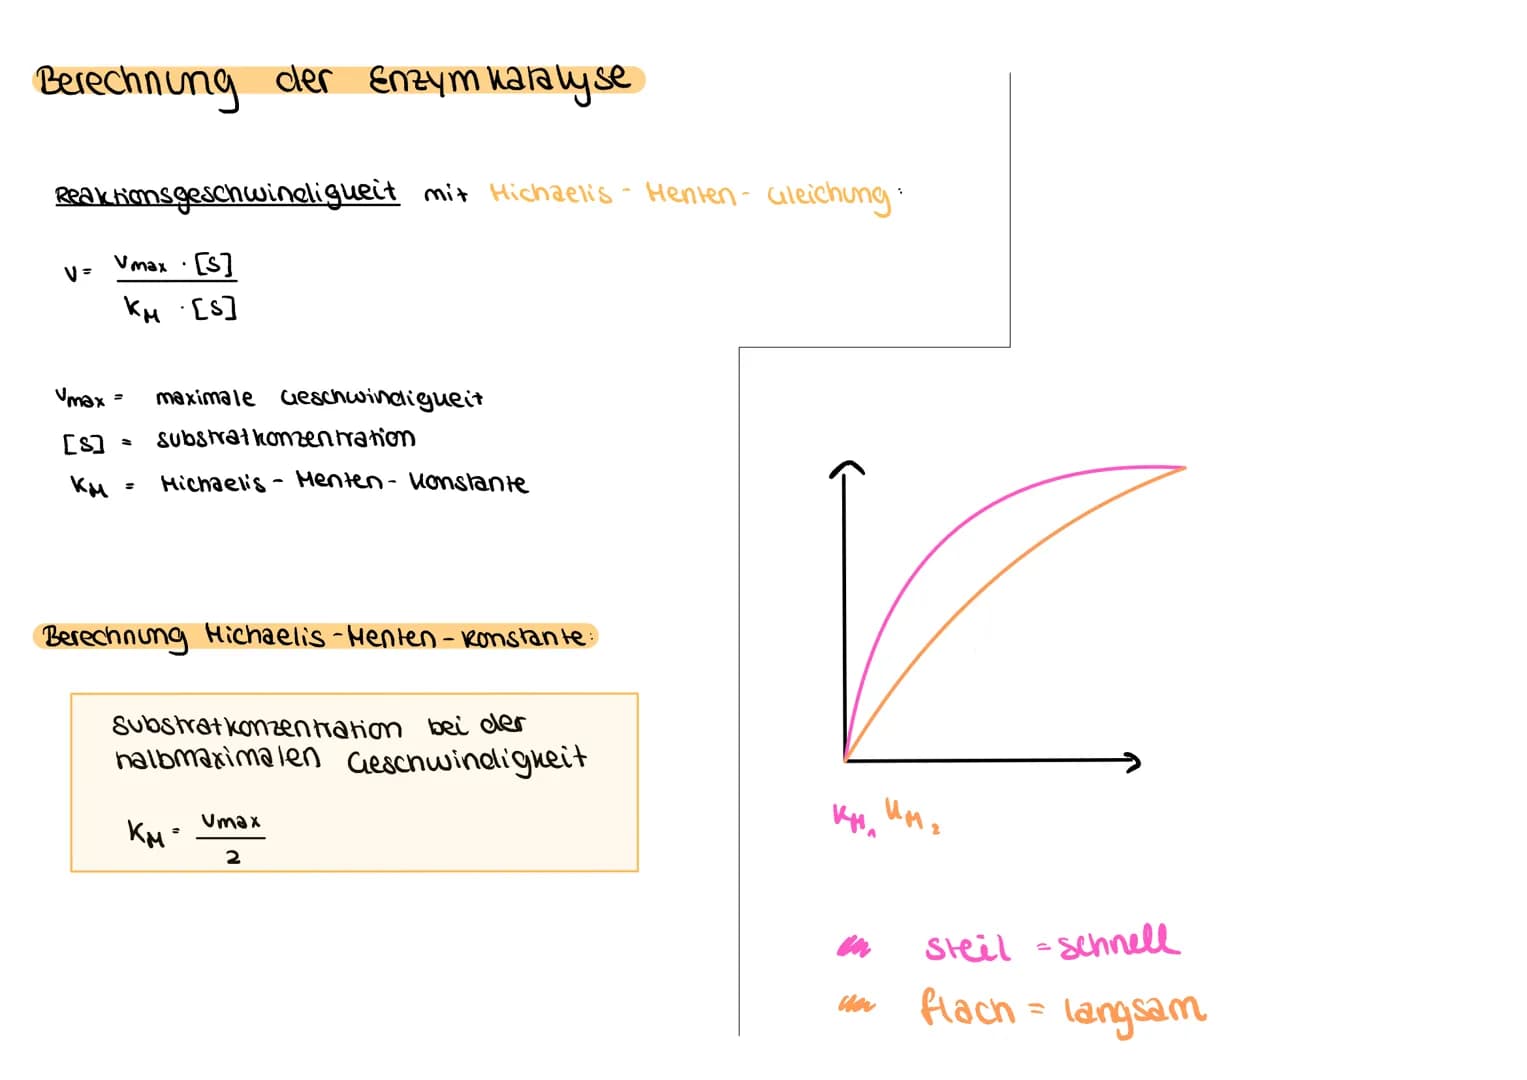 Berechnung der Enzymkatalyse
Reaktionsgeschwindigkeit mit Michaelis-Menten-Gleichung:
v = Vmax · [S]
KM · [S]
Vmax = maximale Geschwindigkeit
[S] = Substratkonzentration
KM = Michaelis-Menten-Konstante
Berechnung Michaelis-Menten-Konstante:
Substratkonzentration bei der
halbmaximalen Geschwindigkeit
KM = Vmax
2
KM1 KM2
steil = schnell
flach = langsam